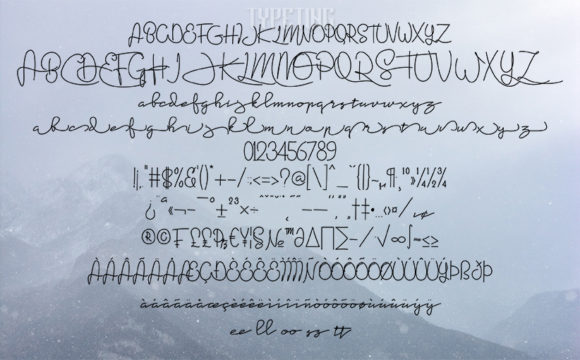 TYPETING
ABCDEFGHIJKLMNOPQRSTUVWXYZ
ABCDEFGHIJKLMNOPQRSTUVWXYZ
abcdefghijklmnopqrstuvwxyz
abcdefghijklmnopqrstuvwxyz
0123456789
!¡,"#$%&'()*+-/:<=>?@[\]^_`{|}~„¶,¹⁰¾½¾
¿¨ª«¬¯°±²³×÷‚–—'‚"„†‡•…‹›¤/
®©₣££₧€¥¦§№™∂∆∏∑−/√∞∫≈≤≥
ÀÁÂÃÄÅÆÇÐÈÉÊËÌÍÎÏÑÒÓÔÕÖØÙÚÛÜÝÞßðþ
àáâãäåæçèéêëìíîïñòóôõöøùúûüýÿ
ee ll oo ss tt